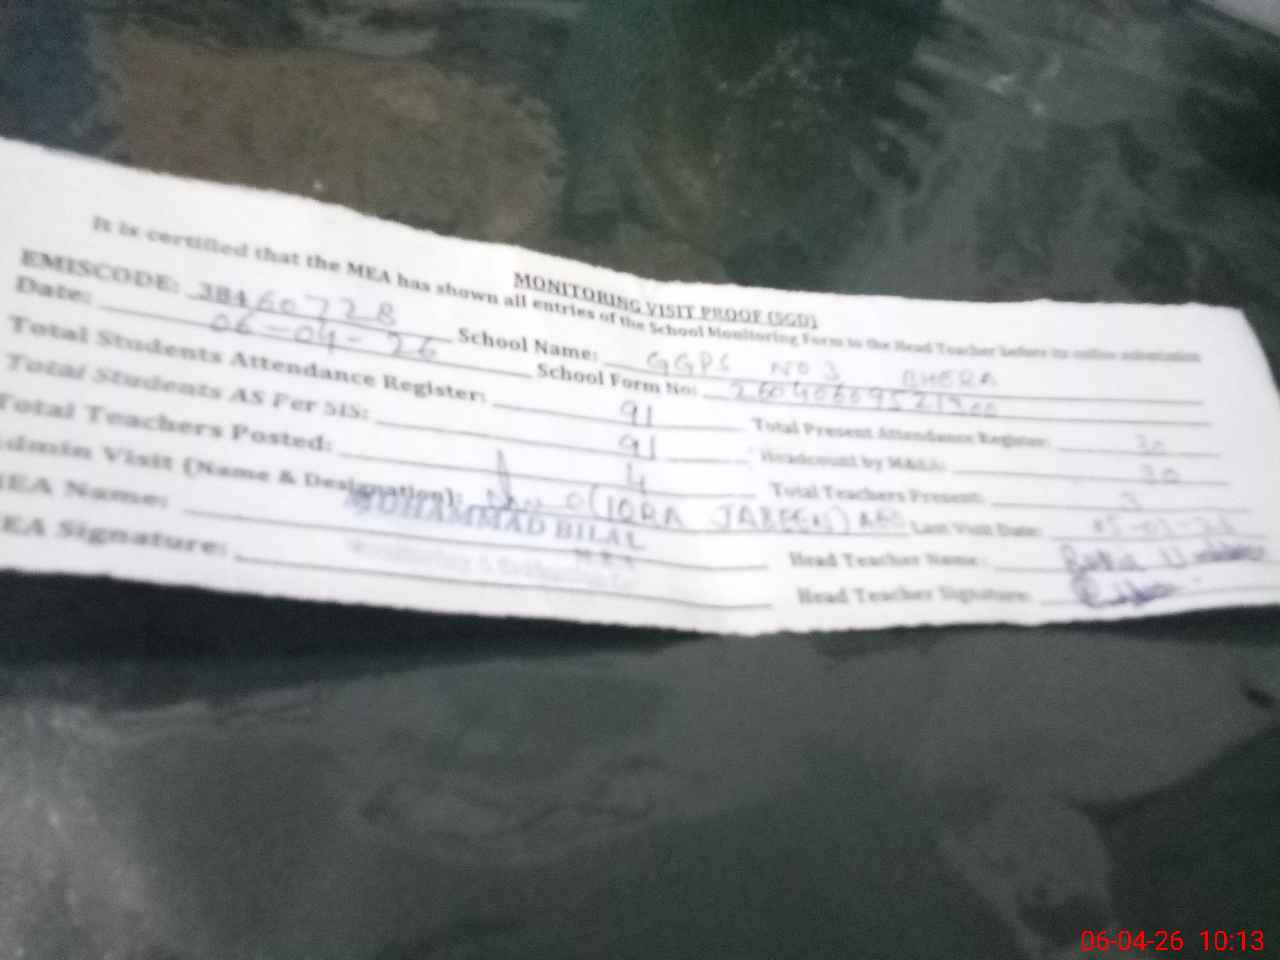 MONITORING VISIT PROOF (SGD)
It is certified that the MEA has shown all entries of the School Monitoring Form to the Head Teacher before its online submission
EMISCODE: 38460728 School Name: GGPS NO 3 BHERA
Date: 06-04-26 School Form No:
Total Students Attendance Register: 91 Total Present Attendance Register: 30
Total Students AS Per SIS: 91 Headcount by MEA: 30
Total Teachers Posted: 4 Total Teachers Present: 3
Admin Visit (Name & Designation): (IQRA JABEEN) Last Visit Date:
MEA Name: MUHAMMAD BILAL Head Teacher Name:
MEA Signature: Head Teacher Signature:
06-04-26 10:13